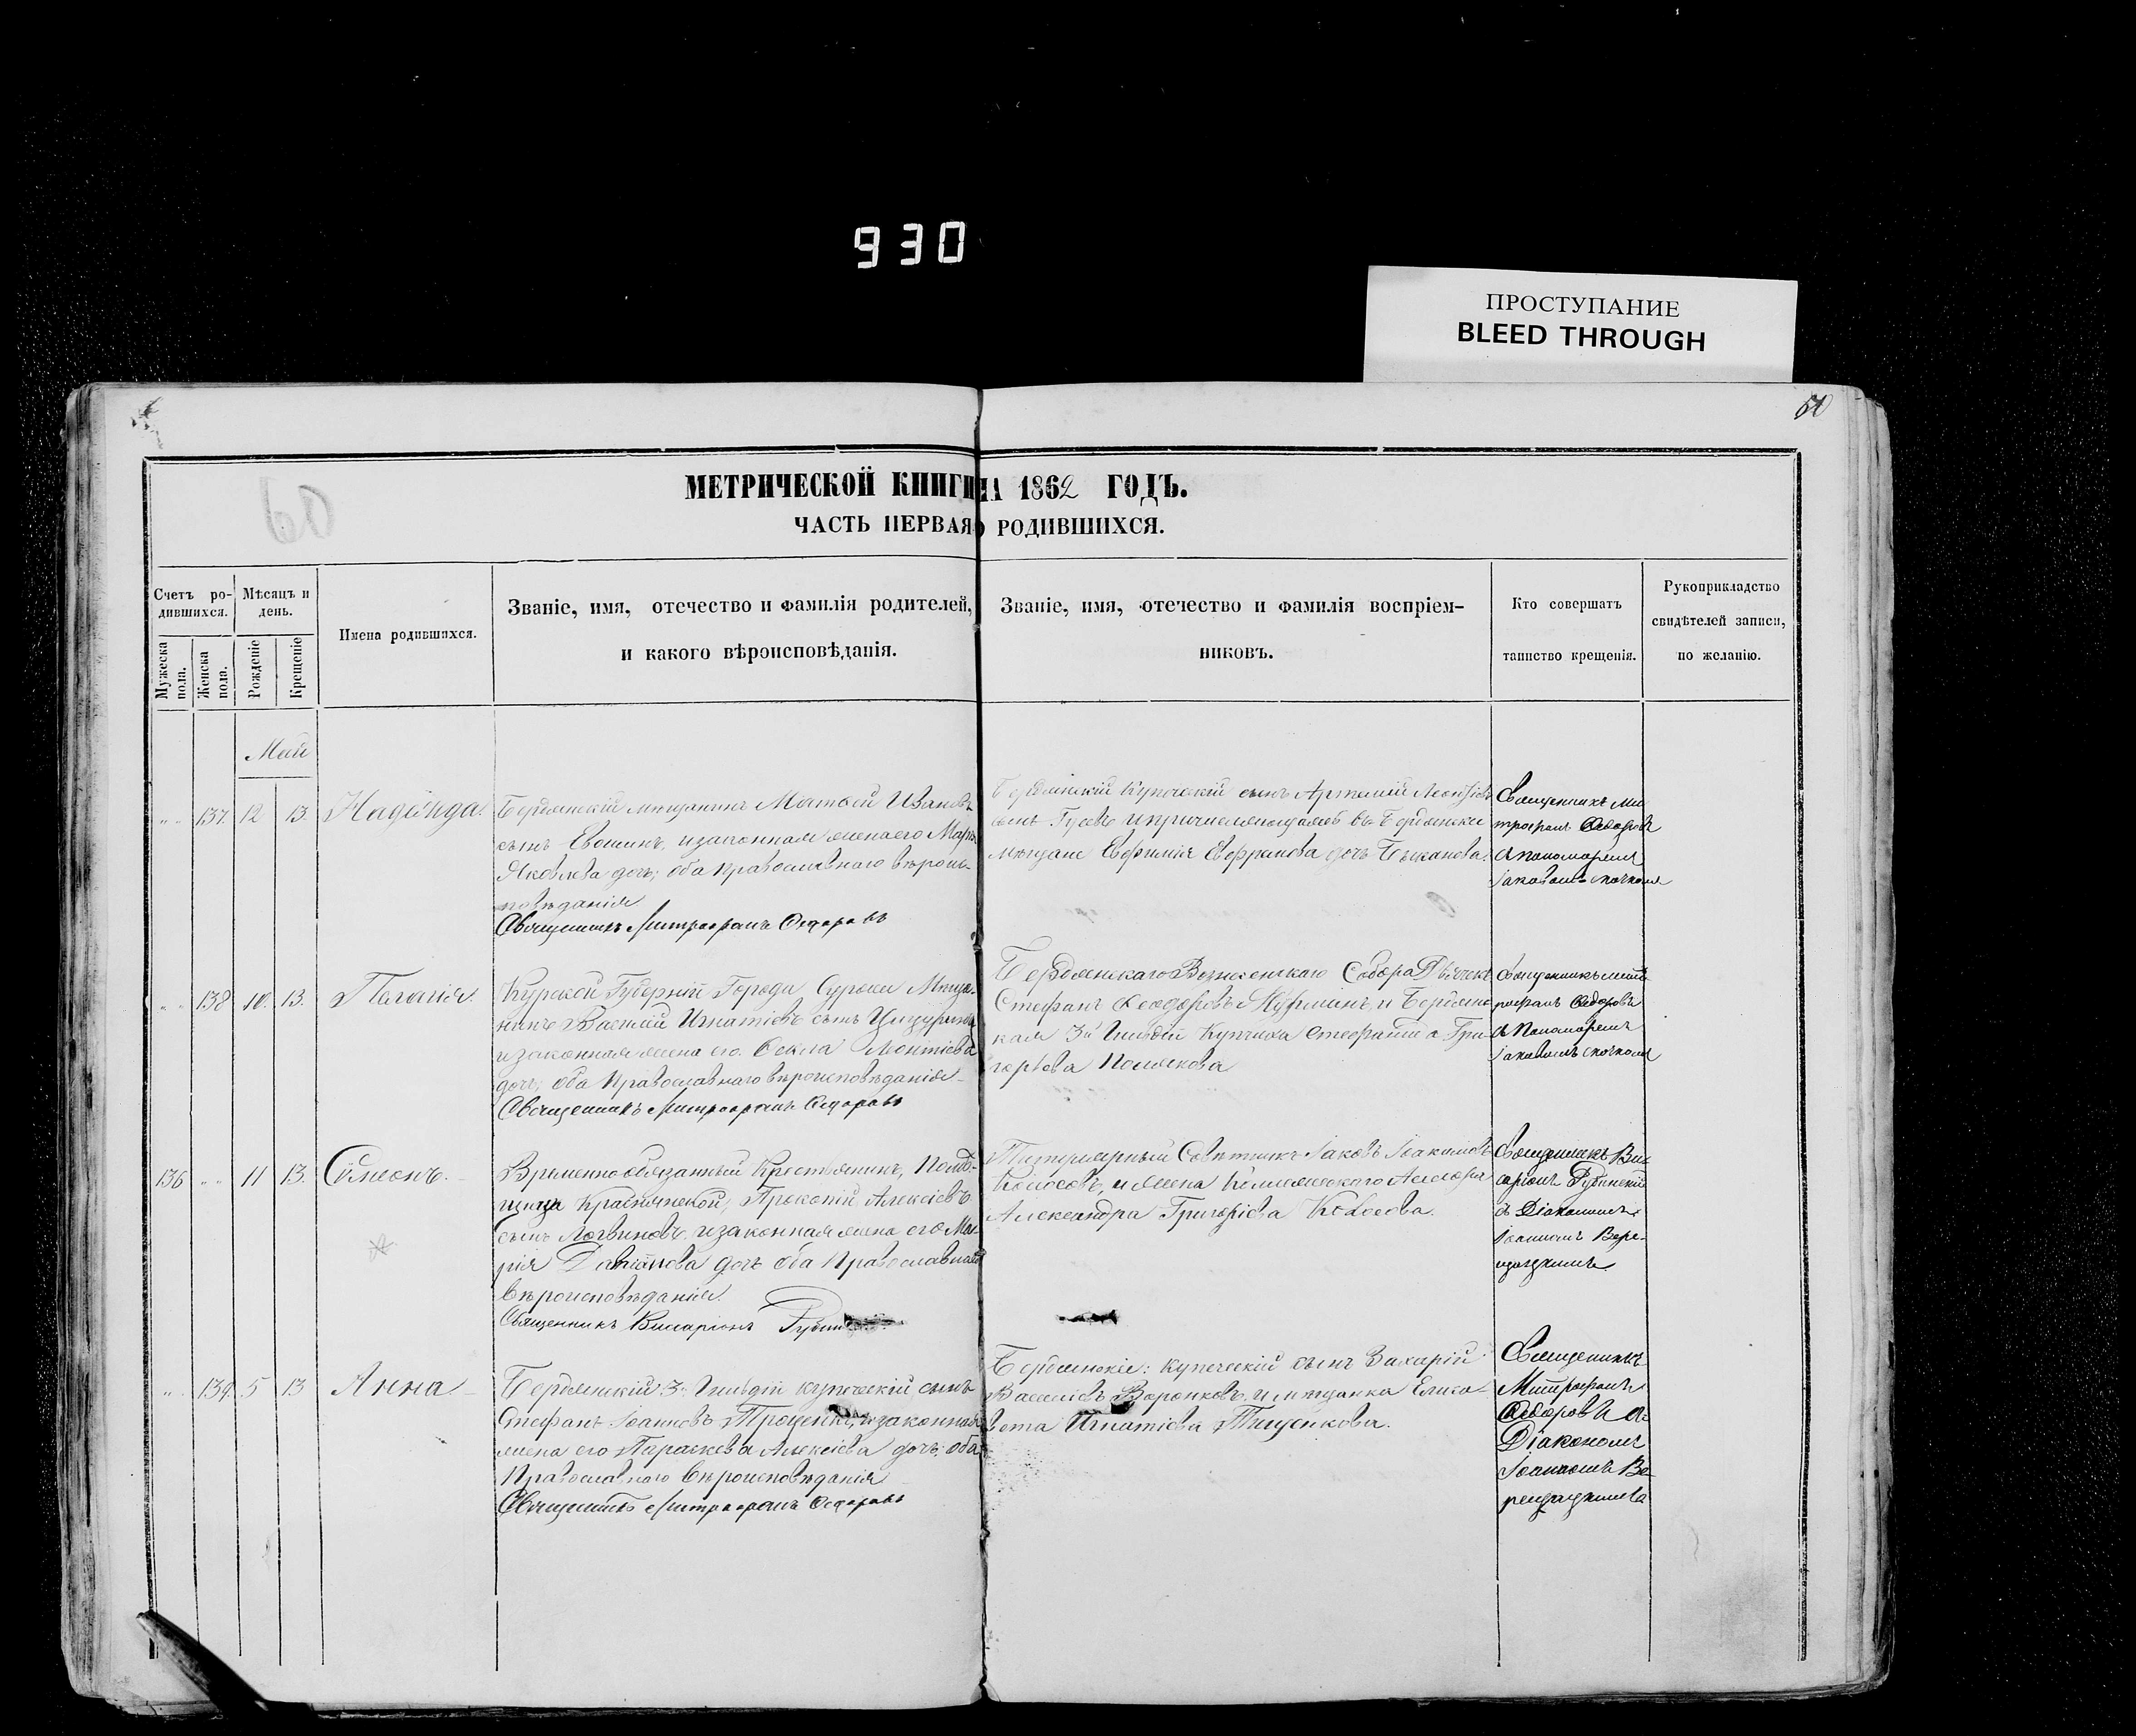 930
ПРОСТУПАНИЕ
BLEED THROUGH
60
МЕТРИЧЕСКОЙ КНИГИ НА 1862 ГОДЪ.
ЧАСТЬ ПЕРВАЯ О РОДИВШИХСЯ.
Счетъ ро-
дившихся.
Мужеска пола.
Женска пола.
Мѣсяцъ и
день.
Рожденіе
Крещеніе
Имена родившихся.
Званіе, имя, отечество и фамилія родителей,
и какого вѣроисповѣданія.
Званіе, имя, отечество и фамилія воспріем-
никовъ.
Кто совершатъ
таинство крещенія.
Рукоприкладство
свидѣтелей записи,
по желанію.
Май
137. 12 13. Надежда.
Бердянскій мѣщанинъ Матвѣй Ивановъ
сынъ Евошинъ, и законная жена его Марія
Яковлева дочь; оба православнаго вѣроис-
повѣданія
Священникъ Митрофанъ Ѳедоровъ
Бердянскій Купеческій сынъ Артемій Леонтіевъ
сынъ Гусевъ
мѣщане Евфимія дочь
Священникъ Ми
трофанъ Ѳедоровъ
съ пономаремъ
Іаковомъ
138 10. 13. Пелагія.
Курской Губерніи Города Суджи Мѣща-
нинъ Василій Игнатіевъ сынъ
и законная жена его Ѳекла Леонтіева
дочь, оба Православнаго вѣроисповѣданія
Священникъ Митрофанъ Ѳедоровъ
Бердянскаго Вознесенскаго Собора Дьячекъ
Стефанъ Ѳеодоровъ и Бердянс
кая 3й Гильдіи Купчиха Стефанида Гри-
горьева Полякова
Священникъ Мит
рофанъ Ѳедоровъ
съ Пономаремъ
Іаковомъ
136 11 13. Сѵмеонъ.
Временнообязанный Крестьянинъ, Помѣ-
щицы Краснянской, Прокопій Алексіевъ
сынъ Логвиновъ, и законная жена его Ма-
рія дочь оба Православнаго
вѣроисповѣданія.
Священникъ Висаріонъ
Титулярный Совѣтникъ Іаковъ Іоакимовъ
и жена Коллежскаго Ассесора
Александра Григорьева
Священникъ Вис
аріонъ Рубинскій
съ Діакономъ
Іоанномъ Вере-
139. 5 13 Анна
Бердянскій 3й Гильдіи купеческій сынъ
Стефанъ Іоанновъ Троценко, и законная
жена его Параскева Алексіева дочь, оба
Православнаго вѣроисповѣданія
Священникъ Митрофанъ Ѳедоровъ
Бердянскіе: купеческій сынъ Захарій
Василіевъ Воронковъ, и мѣщанка Елиса-
вета Игнатіева Тищенкова.
Священникъ
Митрофанъ
Ѳедоровъ съ
Діакономъ
Іоанномъ Ве-